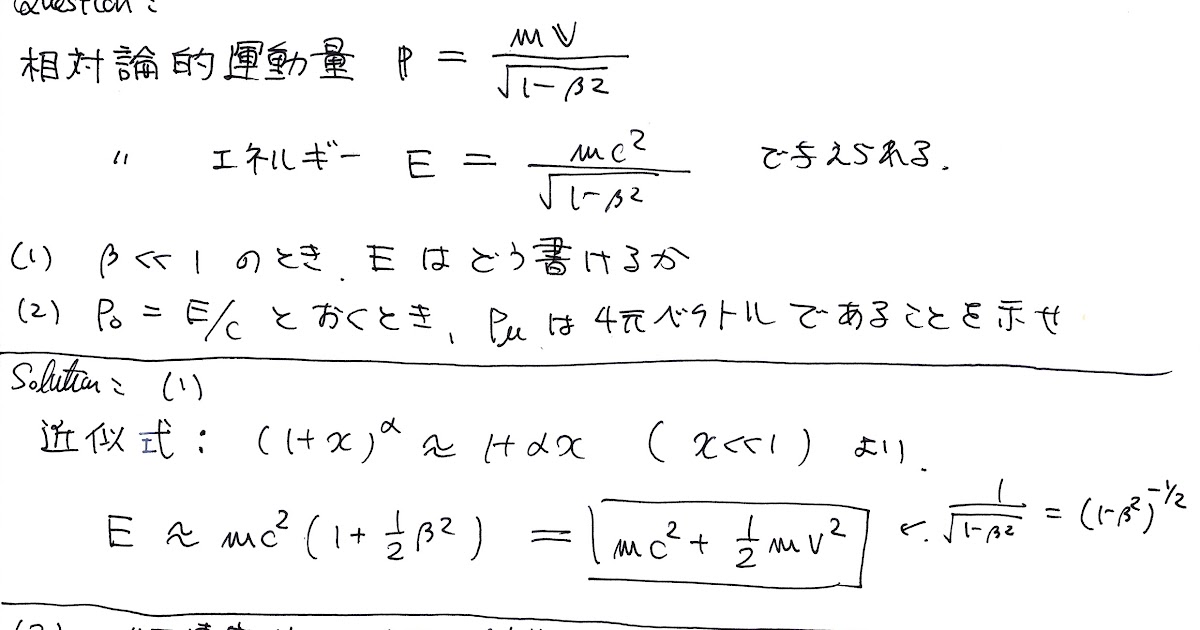 Question:
相対論的運動量 p = mv/√(1-β²)
〃 エネルギー E = mc²/√(1-β²) で与えられる.
(1) β << 1 のとき. E はどう書けるか
(2) P₀ = E/c とおくとき, Pμ は 4元ベクトルであることを示せ
Solution: (1)
近似式: (1+x)^α ≈ 1+αx (x<<1) より.
E ≈ mc²(1+½β²) = mc² + ½mv² ← 1/√(1-β²) = (1-β²)^(-1/2)
(2)